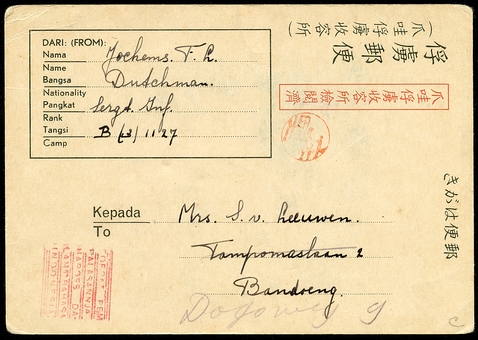 俘虜郵便
(爪哇俘虜收容所)
爪哇俘虜收容所檢閱濟
きがは便郵
DARI: (FROM):
Nama Jochems. T. L.
Name
Bangsa Dutchman.
Nationality
Pangkat Sergt. Inf.
Rank
Tangsi B (3) 1127
Camp
Kepada Mrs. S. v. Leeuwen.
To
Tampomaslaan 2
Bandoeng.
Dagoweg 9
c